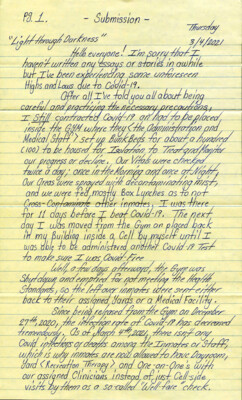 Pg. 1. - Submission -
Thursday
"Light through Darkness" 3/4/2021
Hello everyone! I'm sorry that I
haven't written any essays or stories in awhile
but I've been experiencing some unforeseen
Highs and Lows due to Covid-19.
After all I've told you all about being
careful and practicing the necessary precautions,
I still contracted Covid-19 and had to be placed
inside the GYM where they (the Administration and
Medical Staff) set up Bunkbeds for about a hundred
(100) to be housed for Isolation to Treat and Monitor
our progress or decline. Our Vitals were checked
twice a day; once in the Morning and once at Night.
Our Areas were sprayed with decontaminating Mist,
and we were fed mostly Box Lunches as to not
Cross-Contaminate other inmates. I was there
for 11 days before I beat Covid-19. The next
day I was moved from the Gym an placed back
in my Building inside a Cell by myself until I
was able to be administered another Covid-19 Test
to make sure I was Covid Free.
Well, a few days afterwards, the Gym was
Shutdown and emptied for not meeting the Health
Standards, so the left over inmates were sent either
back to their assigned Yards or a Medical Facility.
Since being released from the Gym on December
27th, 2020, the infection rate of Covid-19 has Decreased
tremendously. As of March 4th, 2021, there isn't any
Covid infections or deaths among the Inmates or Staff,
which is why inmates are now allowed to have Dayroom,
Yard (Recreation Therapy), and One-on-One's with
our assigned Clinicians instead of just Cell-side
visits by them as a so called Welfare check.